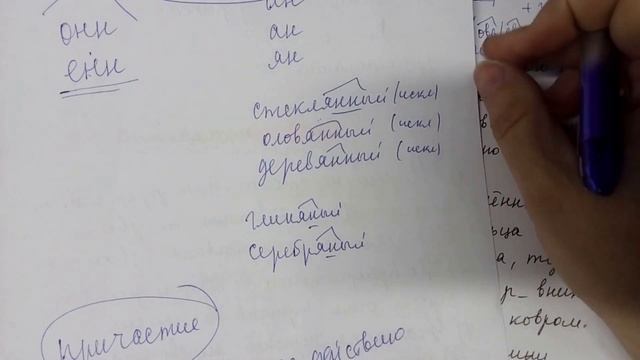 ин
онн ан
енн ян
стеклянный (искл)
оловянный (искл)
деревянный (искл)
глиняный
серебряный
причастие
ковром.